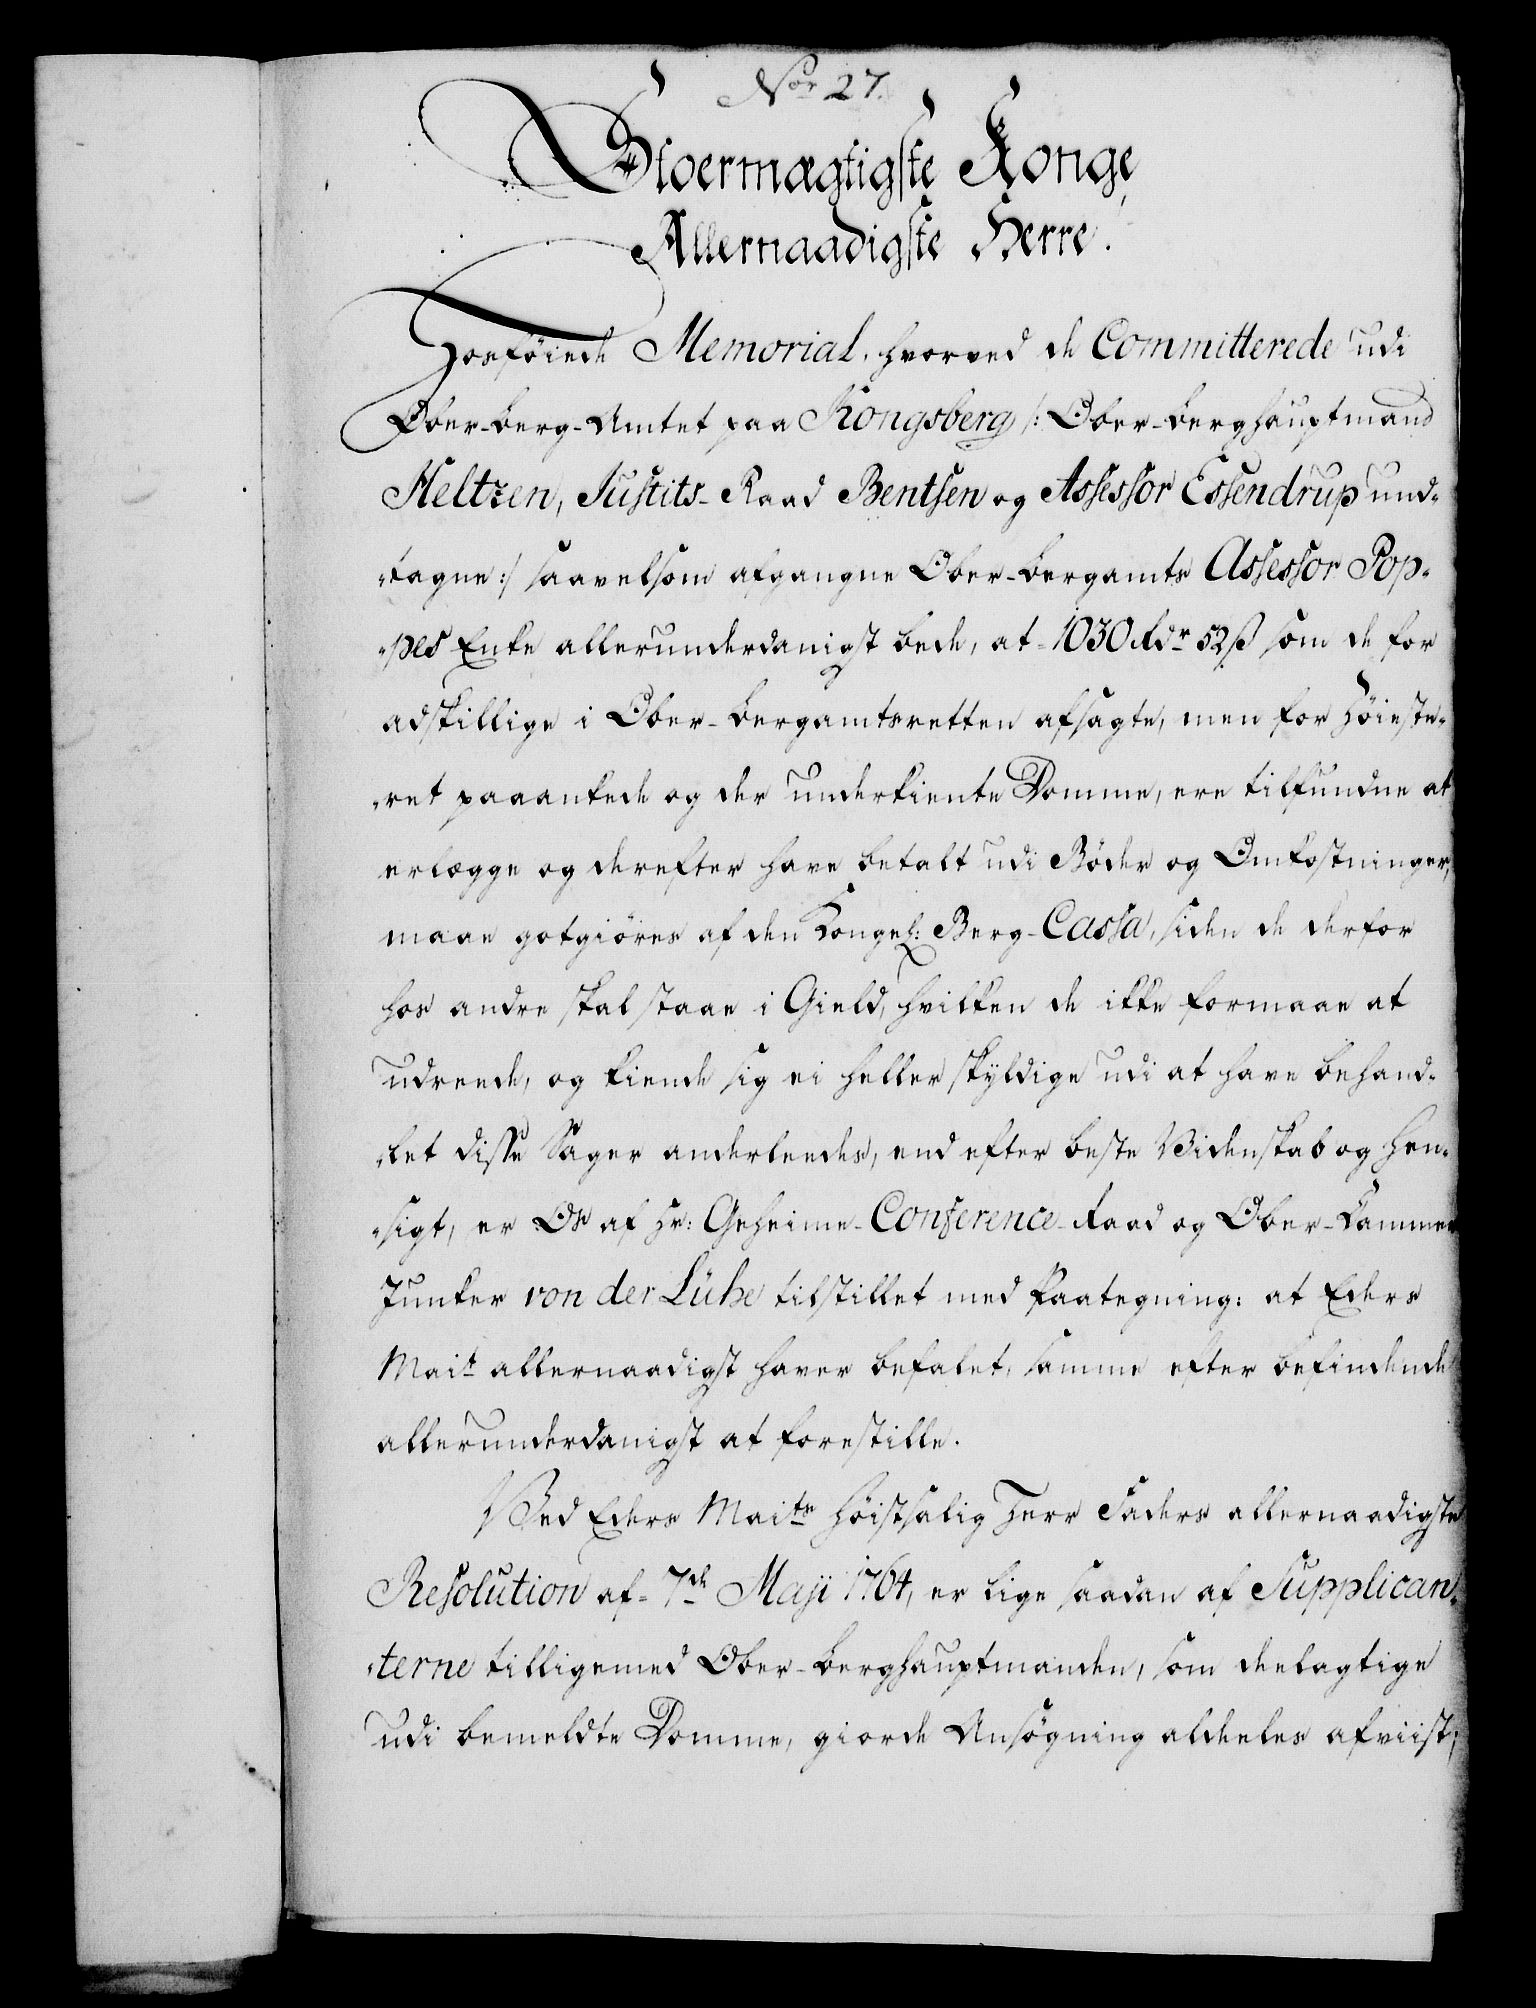 Nor 27.
Stoermægtigste Konge,
Allernaadigste Herre.
Hosföiede Memorial, hvorved de Committerede udi
Ober-berg-Amtet paa Kongsberg /: Ober-berghauptmand
Heltzen, Justits-Raad Bentsen og Assessor Essendrup und-
-tagne :/ saavelsom afgangne Ober-bergamts Assessor Pop-
-pes Enke allerunderdanigst bede, at 1030 Rdr 52 ß som de for
adskillige i Ober-bergamtsretten afsagte, men for Höieste-
-ret paaankede og der underkiente Domme, ere tilfundne at
erlægge og derefter have betalt udi Böder og Omkostninger,
maae gotgiöres af den Kongel: Berg-Cassa, siden de derfor
hos andre skal staae i Gield, hvilken de ikke formaae at
udreede, og kiende sig ei heller skÿldige udi at have behand-
-let disse Sager anderleedes, end efter beste Videnskab og Hen-
-sigt, er Os af Hr: Geheime-Conference-Raad og Ober-Kammer
Junker von der Lühe tilstillet med Paategning: at Eders
Mait allernaadigst haver befalet, samme efter befindende
allerunderdanigst at forestille.
Ved Eders Maits Höistsalig Herr Faders allernaadigste
Resolution af 7de Maji 1764, er lige saadan af Supplican-
-terne tilligemed Ober-berghauptmanden, som deelagtige
udi bemeldte Domme, giorde Ansögning aldeeles afviist,